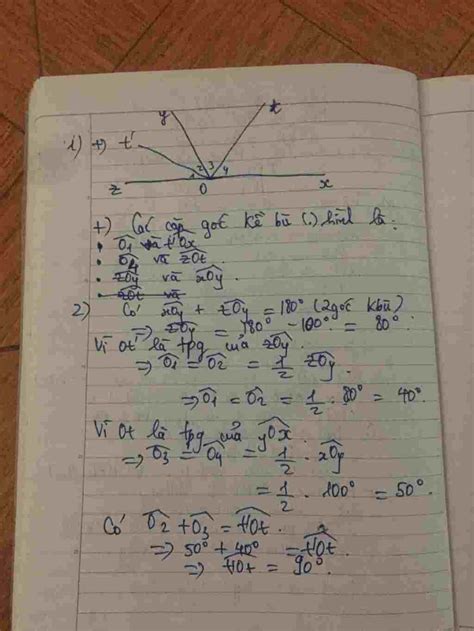 y t
1) +) t'
2 3
1 4
z O x
+) Các cặp góc kề bù (.) hình là:
• Ô1 và t'Ox
• Ô4 và zOt
• zOy và xOy.
• zOt và
2) Có xOy + zOy = 180° (2 góc kbù)
=> zOy = 180° - 100° = 80°
Vì Ot' là tpg của zOy.
=> Ô1 = Ô2 = 1/2 zOy
=> Ô1 = Ô2 = 1/2 . 80° = 40°
Vì Ot là tpg của yOx.
=> Ô3 = Ô4 = 1/2 . xOy
= 1/2 . 100° = 50°
Có Ô2 + Ô3 = t'Ot.
=> 50° + 40° = t'Ot
=> t'Ot = 90°.